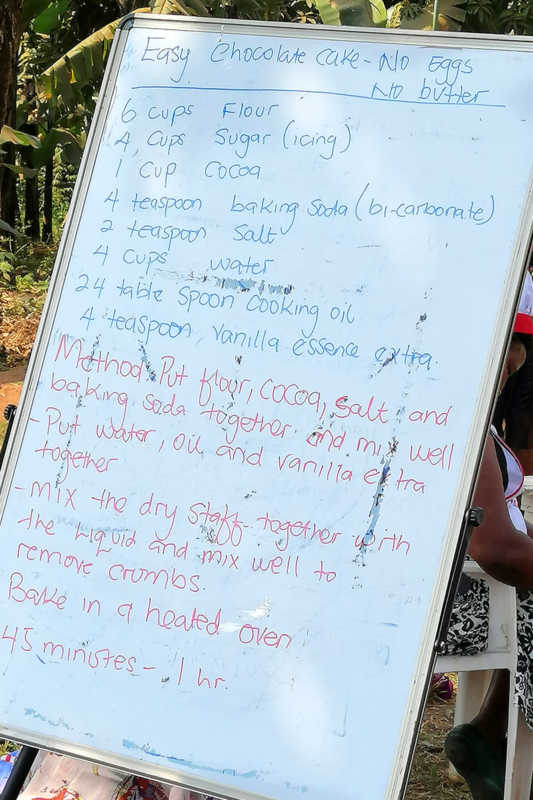 Easy Chocolate Cake - No Eggs
No butter
6 cups Flour
4 Cups Sugar (icing)
1 Cup Cocoa
4 teaspoon baking soda (bi-carbonate)
2 teaspoon Salt
4 Cups water
24 table Spoon Cooking oil
4 teaspoon vanilla essence extra.
Method - Put flour, cocoa, salt and
baking soda together and mix well
- Put water, oil and vanilla extra
together
- mix the dry staff together with
the Liquid and mix well to
remove crumbs.
Bake in a heated oven
45 minutes - 1 hr.